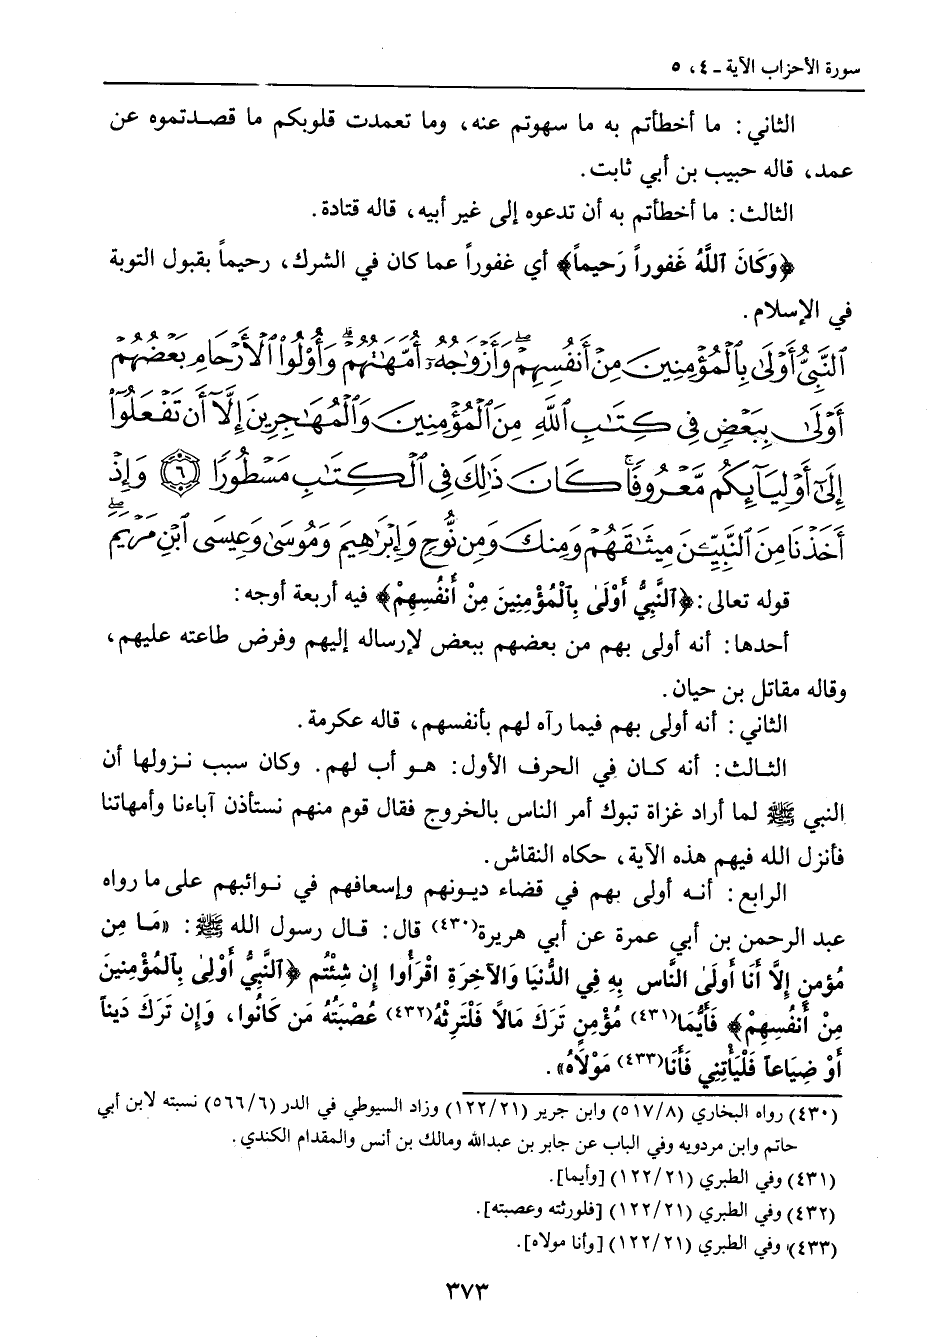 سورة الأحزاب الآية ـ ٤، ٥
الثاني: ما أخطأتم به ما سهوتم عنه، وما تعمدت قلوبكم ما قصدتموه عن
عمد، قاله حبيب بن أبي ثابت.
الثالث: ما أخطأتم به أن تدعوه إلى غير أبيه، قاله قتادة.
﴿وَكَانَ ٱللَّهُ غَفُوراً رَحِيماً﴾ أي غفوراً عما كان في الشرك، رحيماً بقبول التوبة
في الإسلام.
ٱلنَّبِىُّ أَوْلَىٰ بِٱلْمُؤْمِنِينَ مِنْ أَنفُسِهِمْ ۖ وَأَزْوَٰجُهُۥٓ أُمَّهَٰتُهُمْ ۗ وَأُو۟لُوا۟ ٱلْأَرْحَامِ بَعْضُهُمْ
أَوْلَىٰ بِبَعْضٍ فِى كِتَٰبِ ٱللَّهِ مِنَ ٱلْمُؤْمِنِينَ وَٱلْمُهَٰجِرِينَ إِلَّآ أَن تَفْعَلُوٓا۟
إِلَىٰٓ أَوْلِيَآئِكُم مَّعْرُوفًا ۚ كَانَ ذَٰلِكَ فِى ٱلْكِتَٰبِ مَسْطُورًا ﴿٦﴾ وَإِذْ
أَخَذْنَا مِنَ ٱلنَّبِيِّـۧنَ مِيثَٰقَهُمْ وَمِنكَ وَمِن نُّوحٍ وَإِبْرَٰهِيمَ وَمُوسَىٰ وَعِيسَى ٱبْنِ مَرْيَمَ ۖ
قوله تعالى: ﴿ٱلنَّبِيُّ أَوْلَىٰ بِالْمُؤْمِنِينَ مِنْ أَنفُسِهِمْ﴾ فيه أربعة أوجه:
أحدها: أنه أولى بهم من بعضهم ببعض لإرساله إليهم وفرض طاعته عليهم،
وقاله مقاتل بن حيان.
الثاني: أنه أولى بهم فيما رآه لهم بأنفسهم، قاله عكرمة.
الثالث: أنه كان في الحرف الأول: هو أب لهم. وكان سبب نزولها أن
النبي ﷺ لما أراد غزاة تبوك أمر الناس بالخروج فقال قوم منهم نستأذن آباءنا وأمهاتنا
فأنزل الله فيهم هذه الآية، حكاه النقاش.
الرابع: أنه أولى بهم في قضاء ديونهم وإسعافهم في نوائبهم على ما رواه
عبد الرحمن بن أبي عمرة عن أبي هريرة(٤٣٠) قال: قال رسول الله ﷺ: «مَا مِن
مُؤمنٍ إِلَّا أَنَا أَولَىٰ النَّاسِ بِهِ فِي الدُّنيَا وَالآخِرَةِ اقْرَأُوا إِن شِئْتُم ﴿ٱلنَّبِيُّ أَوْلِىٰ بِالمُؤْمِنِينَ
مِنْ أَنفُسِهِمْ﴾ فَأَيُّمَا(٤٣١) مُؤْمِنٍ تَرَكَ مَالاً فَلْتَرِثْهُ(٤٣٢) عُصْبَتُهُ مَن كَانُوا، وَإِن تَرَكَ دَيناً
أَوْ ضِيَاعاً فَلْيَأْتِنِي فَأَنَا(٤٣٣) مَوْلَاهُ».
(٤٣٠) رواه البخاري (٥١٧/٨) وابن جرير (١٢٢/٢١) وزاد السيوطي في الدر (٥٦٦/٦) نسبته لابن أبي
حاتم وابن مردويه وفي الباب عن جابر بن عبدالله ومالك بن أنس والمقدام الكندي.
(٤٣١) وفي الطبري (١٢٢/٢١) [وأيما].
(٤٣٢) وفي الطبري (١٢٢/٢١) [فلورثته وعصبته].
(٤٣٣) وفي الطبري (١٢٢/٢١) [وأنا مولاه].
٣٧٣